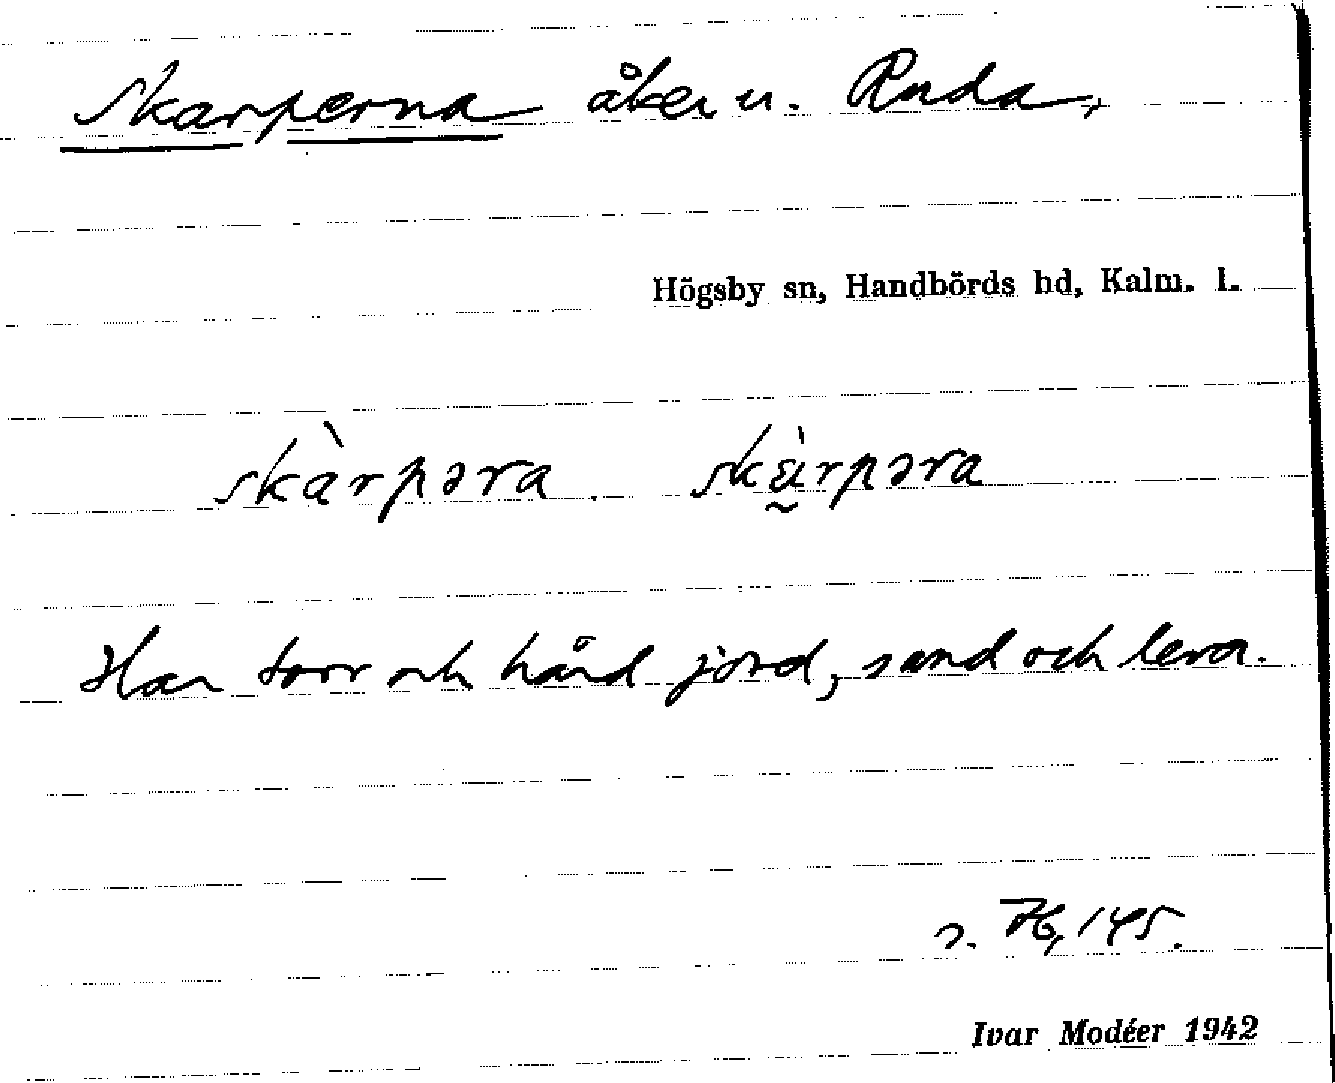 Skarperna åker u. Ruda,
Högsby sn, Handbörds hd, Kalm. l.
skàrpəra . skàrpəra
Har torr och hård jord, sand och lera.
s. 76, 145.
Ivar Modéer 1942